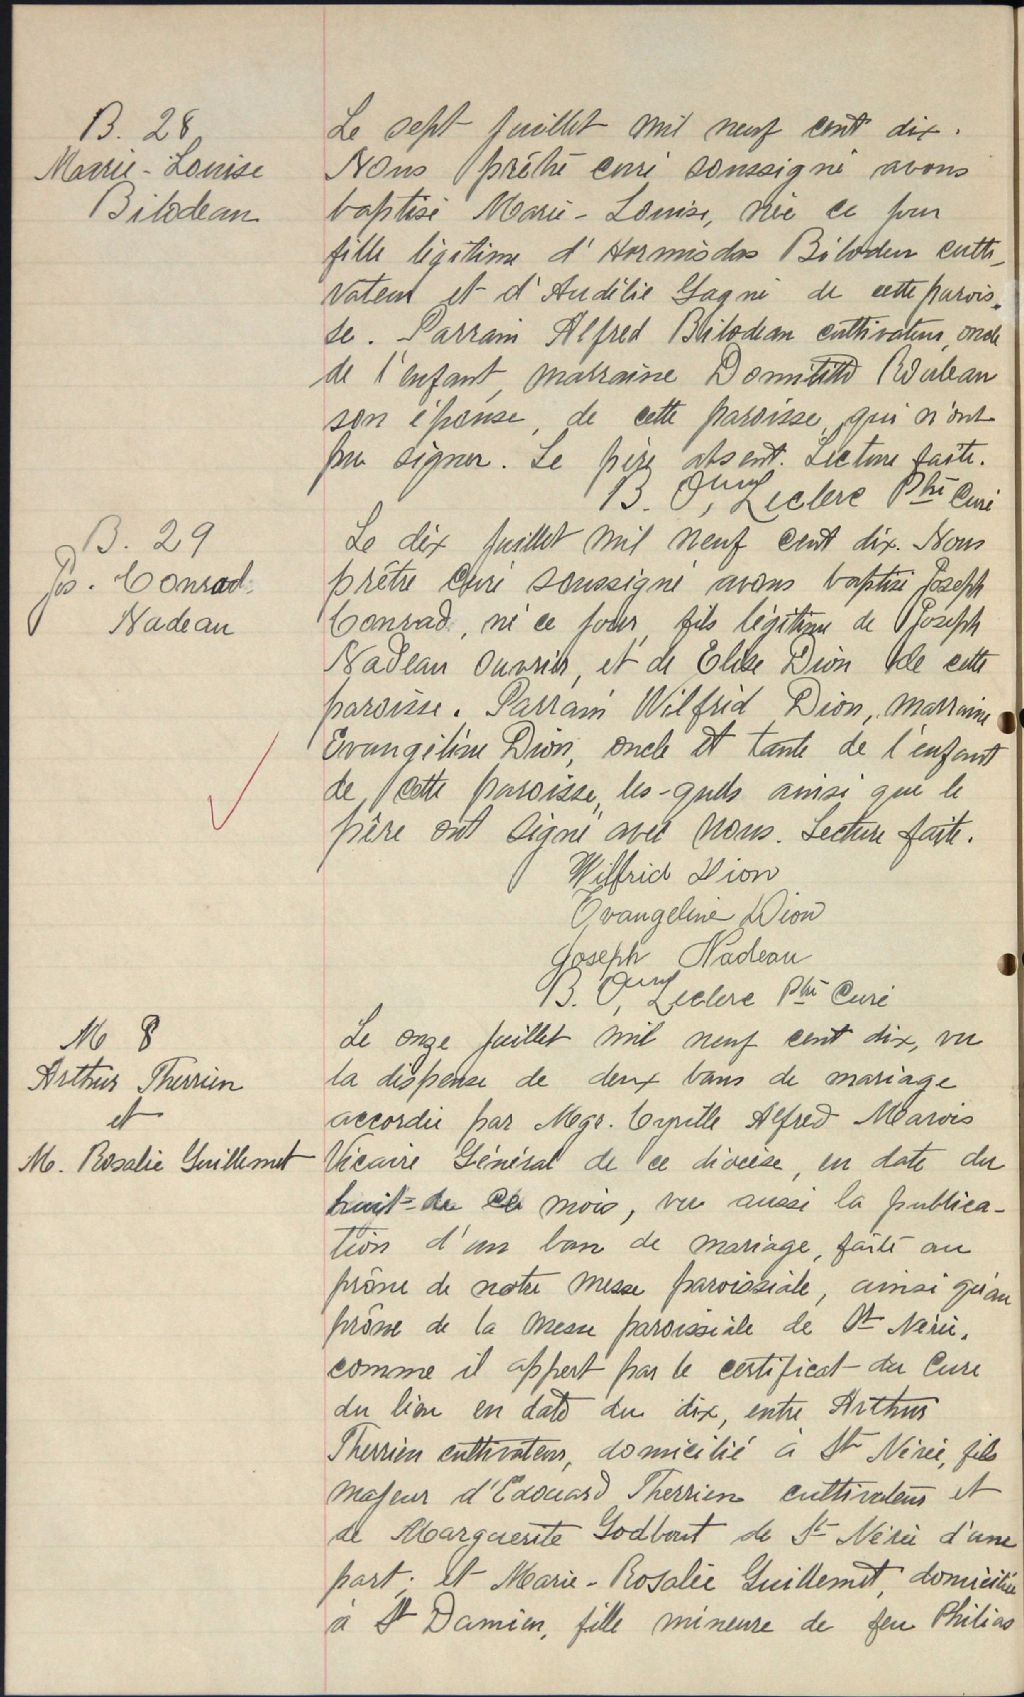 B. 28
Marie-Louise
Bilodeau
Le sept juillet mil neuf cent dix.
Nous prêtre curé soussigné avons
baptisé Marie-Louise, née ce jour
fille légitime d'Hormisdas Bilodeu culti-
vateur et d'Audélie Gagné de cette parois-
se. Parrain Alfred Bilodeau cultivateur, oncle
de l'enfant, marraine Domitild Rouleau
son épouse, de cette paroisse, qui n'ont
pu signer. Le père absent. Lecture faite.
B. Leclerc Ptre Curé
B. 29
Jos. Conrad
Nadeau
Le dix juillet mil neuf cent dix. Nous
prêtre curé soussigné avons baptisé Joseph
Conrad, né ce jour, fils légitime de Joseph
Nadeau ouvrier, et de Elise Dion de cette
paroisse. Parrain Wilfrid Dion, marraine
Evangéline Dion, oncle et tante de l'enfant
de cette paroisse, les-quels ainsi que le
père ont signé avec nous. Lecture faite.
Wilfrid Dion
Evangeline Dion
Joseph Nadeau
B. Leclerc Ptre Curé
M 8
Arthur Therrien
et
M. Rosalie Guillemet
Le onze juillet mil neuf cent dix, vu
la dispense de deux bans de mariage
accordée par Mgr. Cyrille Alfred Marois
Vicaire Général de ce diocèse, en date du
huit de ce mois, vu aussi la publica-
tion d'un ban de mariage, faite au
prône de notre messe paroissiale, ainsi qu'au
prône de la messe paroissiale de St Nérée,
comme il appert par le certificat du Curé
du lieu en date du dix, entre Arthur
Therrien cultivateur, domicilié à St Nérée, fils
majeur d'Edouard Therrien cultivateur et
de Marguerite Godbout de St Nérée d'une
part; et Marie-Rosalie Guillemet, domiciliée
à St Damien, fille mineure de feu Philias